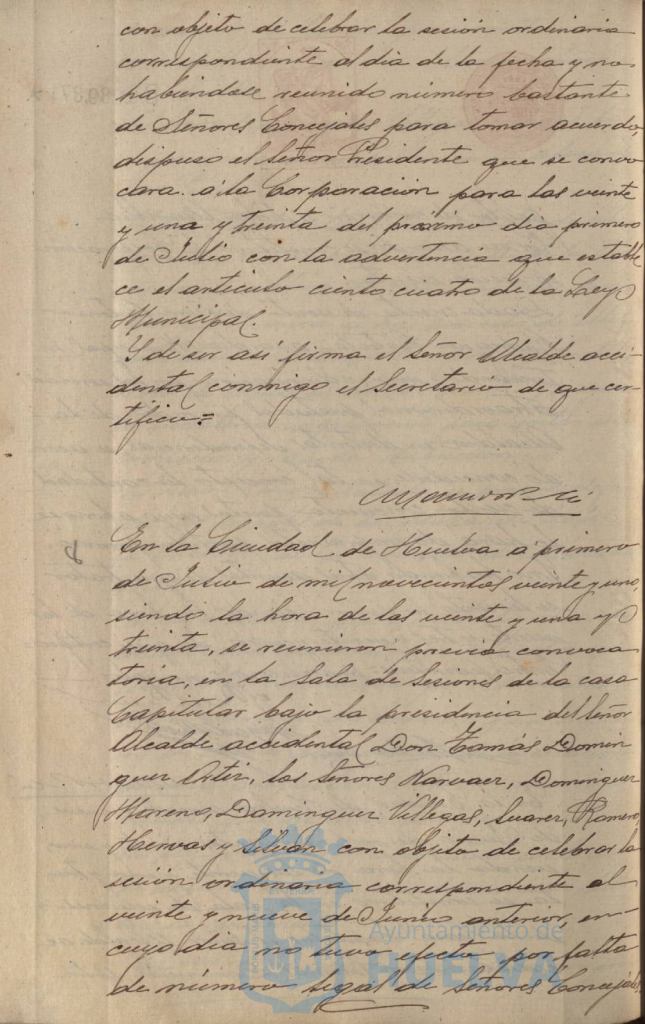 con objeto de celebrar la sesión ordinaria
correspondiente al dia de la fecha y no
habiéndose reunido número bastante
de Señores Concejales para tomar acuerdo,
dispuso el Señor Presidente que se convo
cara á la Corporación para las veinte
y una y treinta del próximo dia primero
de Julio con la advertencia que estable
ce el artículo ciento cuatro de la Ley
Municipal.
Y de ser así firma el Señor Alcalde acci-
dental conmigo el Secretario de que cer-
tifico=
En la Ciudad de Huelva á primero
de Julio de mil novecientos veinte y uno,
siendo la hora de las veinte y una y
treinta, se reunieron previa convoca
toria, en la Sala de Sesiones de la casa
Capitular bajo la presidencia del Señor
Alcalde accidental Don Tomás Domin
guez Ortiz, los Señores Narvaez, Dominguez
Moreno, Dominguez Villegas, Suarez, Romero,
Hervas y Silván con objeto de celebrar la
sesión ordinaria correspondiente al
veinte y nueve de Junio anterior, en
cuyo dia no tuvo efecto por falta
de número legal de Señores Concejales.
Ayuntamiento de
HUELVA